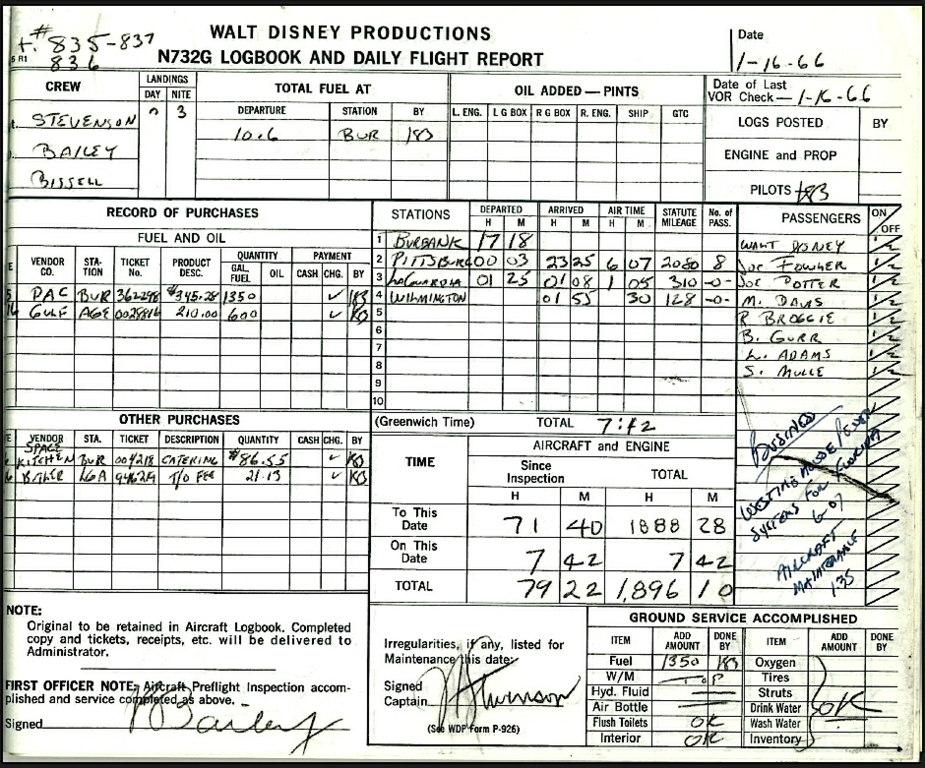 WALT DISNEY PRODUCTIONS
N732G LOGBOOK AND DAILY FLIGHT REPORT
# 835-837
836
Date
1-16-66
CREW
LANDINGS
DAY NITE
3
STEVENSON
BAILEY
BISSELL
TOTAL FUEL AT
DEPARTURE STATION BY
10.6 BUR
OIL ADDED — PINTS
L. ENG. L G BOX R G BOX R. ENG. SHIP GTC
Date of Last
VOR Check— 1-16-66
LOGS POSTED BY
ENGINE and PROP
PILOTS
RECORD OF PURCHASES
FUEL AND OIL
VENDOR CO. STA- TION TICKET No. PRODUCT DESC. QUANTITY GAL. FUEL OIL PAYMENT CASH CHG. BY
PAC BUR 362298 $345.28 1350 ✓
GULF AGE 0028816 210.00 600 ✓ KB
OTHER PURCHASES
VENDOR STA. TICKET DESCRIPTION QUANTITY CASH CHG. BY
SPACE KITCHEN BUR 004218 CATERING $86.55 ✓ KB
LGA T/O FEE 21.13 ✓ KB
NOTE:
Original to be retained in Aircraft Logbook. Completed
copy and tickets, receipts, etc. will be delivered to
Administrator.
FIRST OFFICER NOTE: Aircraft Preflight Inspection accom-
plished and service completed as above.
Signed Bailey
STATIONS DEPARTED H M ARRIVED H M AIR TIME H M STATUTE MILEAGE No. of PASS.
1 BURBANK 17 18
2 PITTSBURG 00 03 23 25 6 07 2080 8
3 LaGUARDIA 01 25 01 08 1 05 310 -0-
4 WILMINGTON 01 55 30 128 -0-
5
6
7
8
9
10
(Greenwich Time) TOTAL 7:42
TIME
AIRCRAFT and ENGINE
Since Inspection TOTAL
H M H M
To This Date 71 40 1888 28
On This Date 7 42 7 42
TOTAL 79 22 1,896 10
Irregularities, if any, listed for
Maintenance this date:
Signed
Captain Stevenson
(See WDP Form P-926)
PASSENGERS ON OFF
WALT DISNEY 1/2
JOE FOWLER 1/2
JOE POTTER 1/2
M. DAVIS 1/2
R BROGGIE 1/2
B. GURR 1/2
L. ADAMS 1/2
S. MULLE 1/2
BUSINESS
WESTINGHOUSE POWER
SYSTEMS FOR FLORIDA
6-07
AIRCRAFT
MAINTENANCE
1:35
GROUND SERVICE ACCOMPLISHED
ITEM ADD AMOUNT DONE BY ITEM ADD AMOUNT DONE BY
Fuel 1350 Oxygen
W/M TOP Tires
Hyd. Fluid Struts
Air Bottle Drink Water OK
Flush Toilets OK Wash Water
Interior OK Inventory